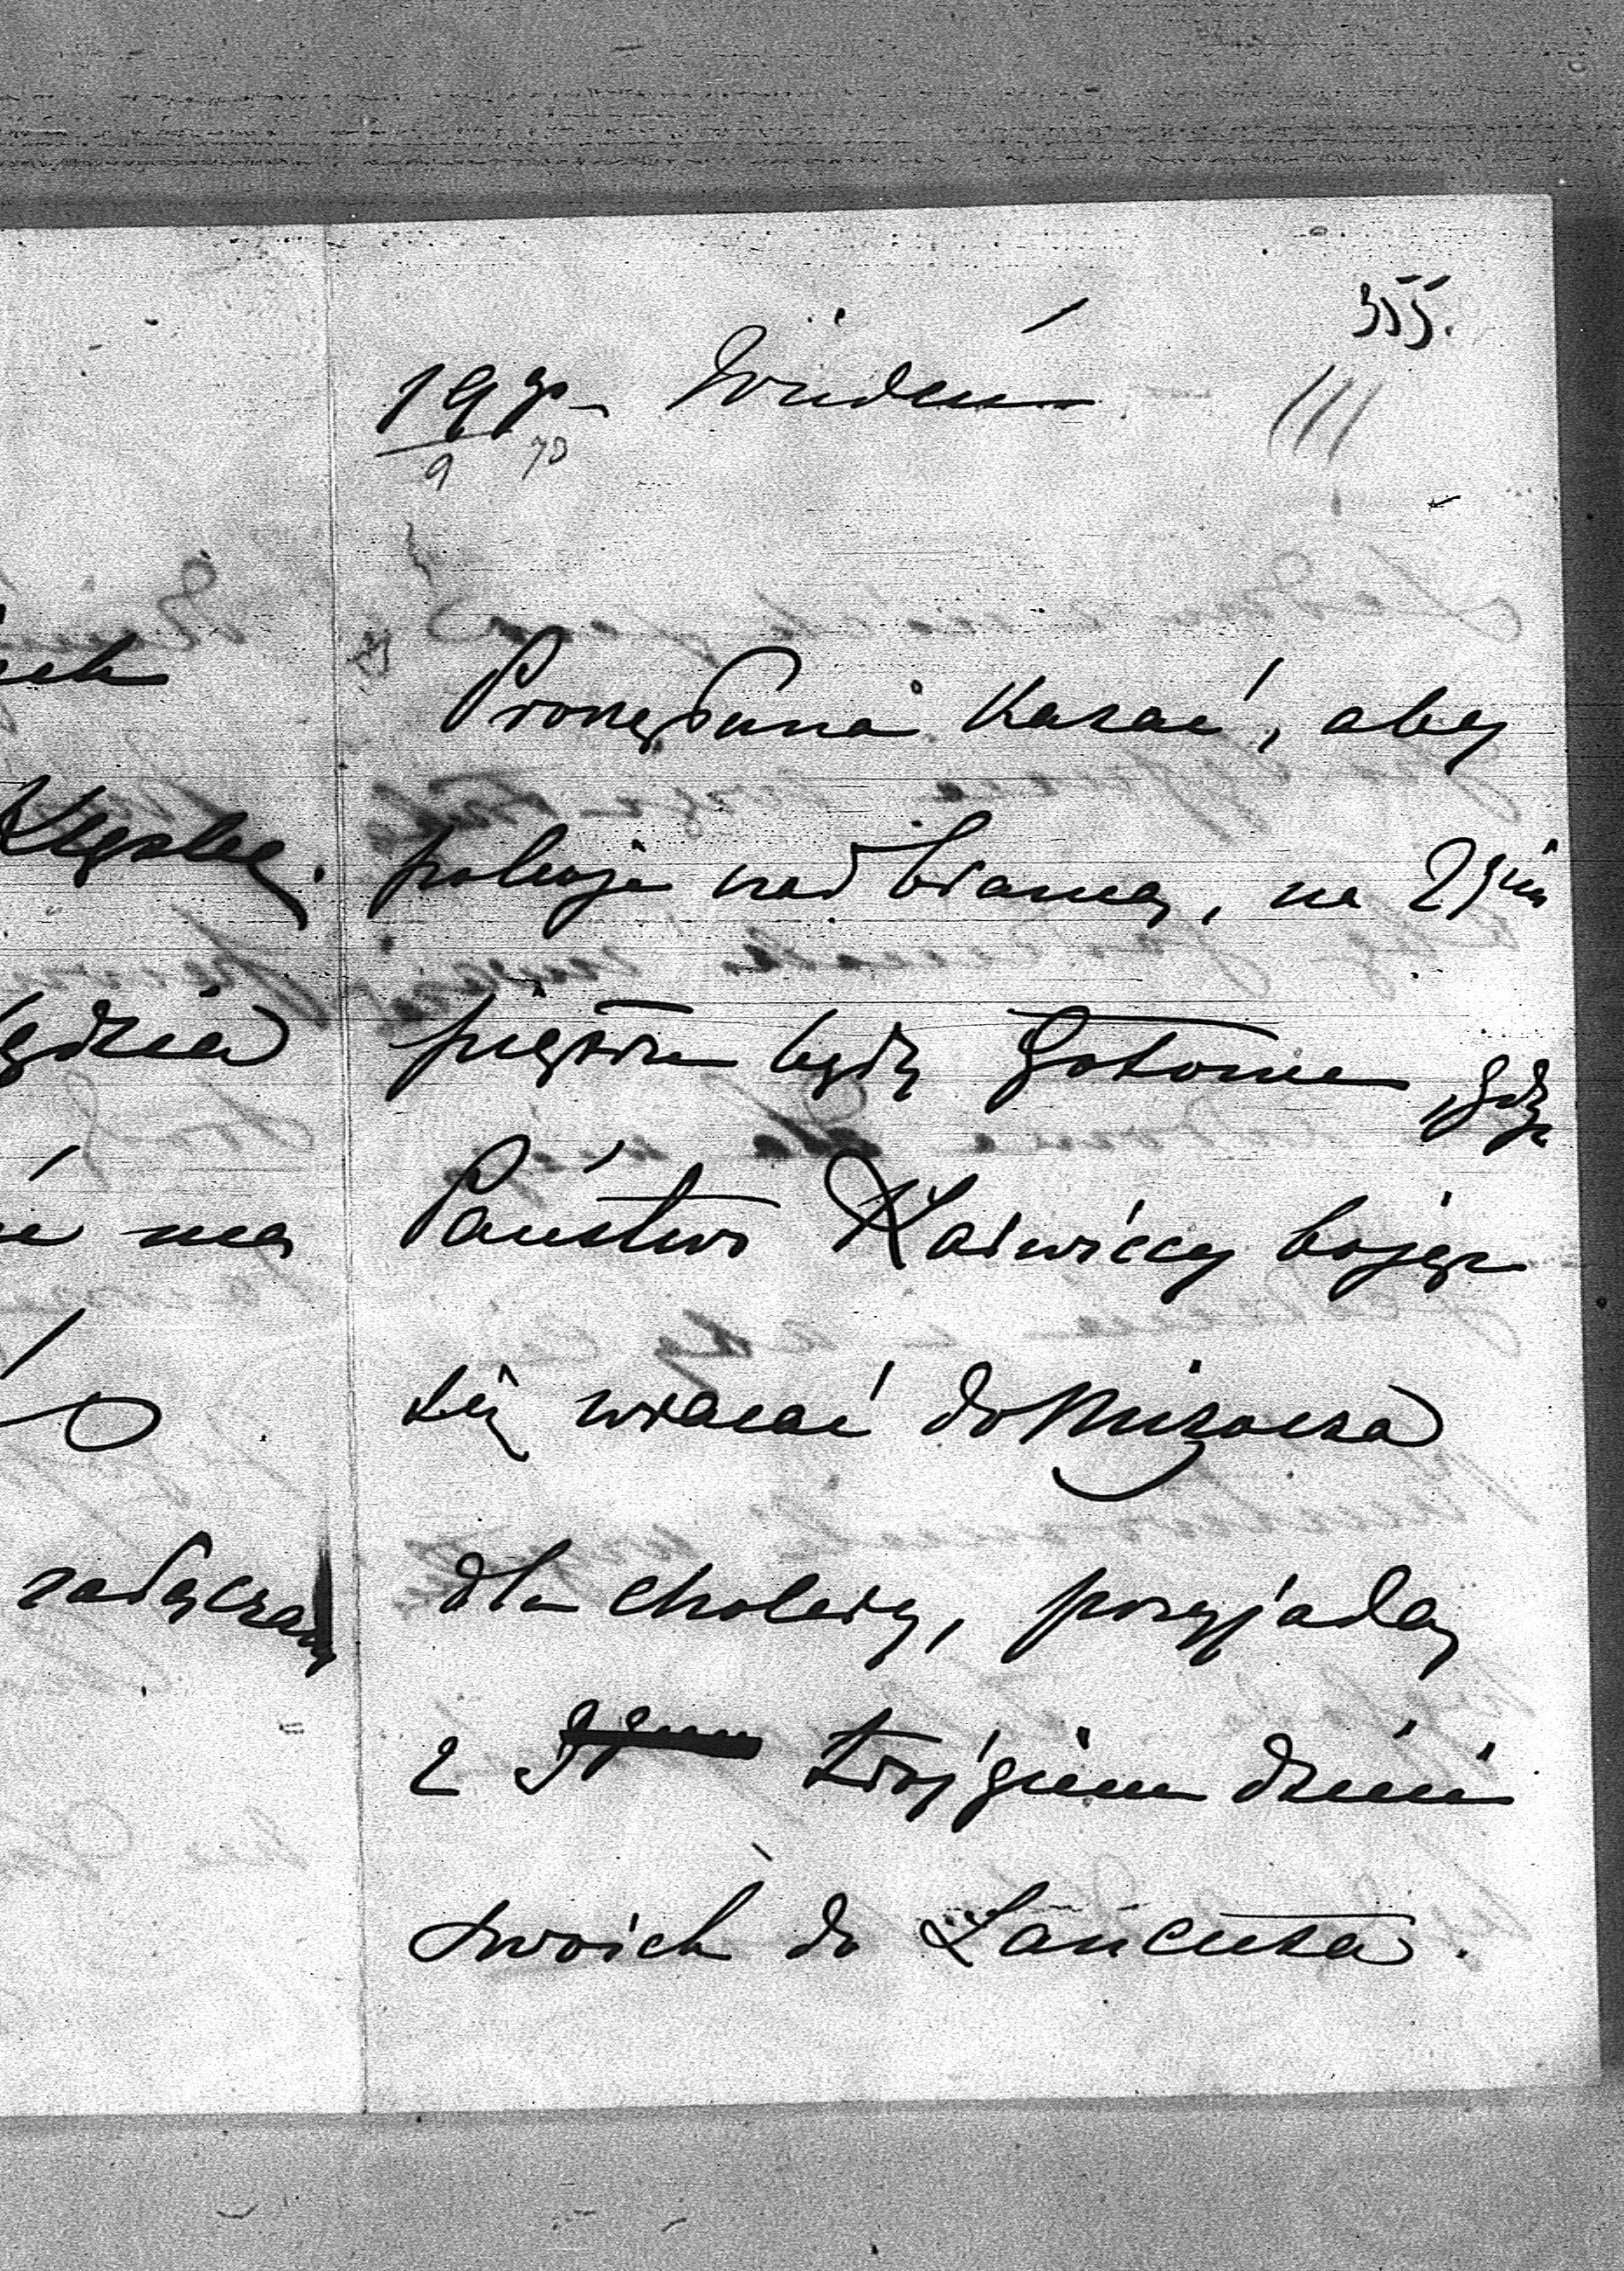 355.
19go Wiédeń
9 73
Proszę Pana kazać, aby
pokoje nad bramą, na 2giem
piętrze będą gotowe gdyż
Państwo Karwiccy bojąc
się wracać do Mizocza
dla cholery, przyjadą
z trojgiem dzieci
swoich do Łańcuta.
ych
będzie
mą
załączam